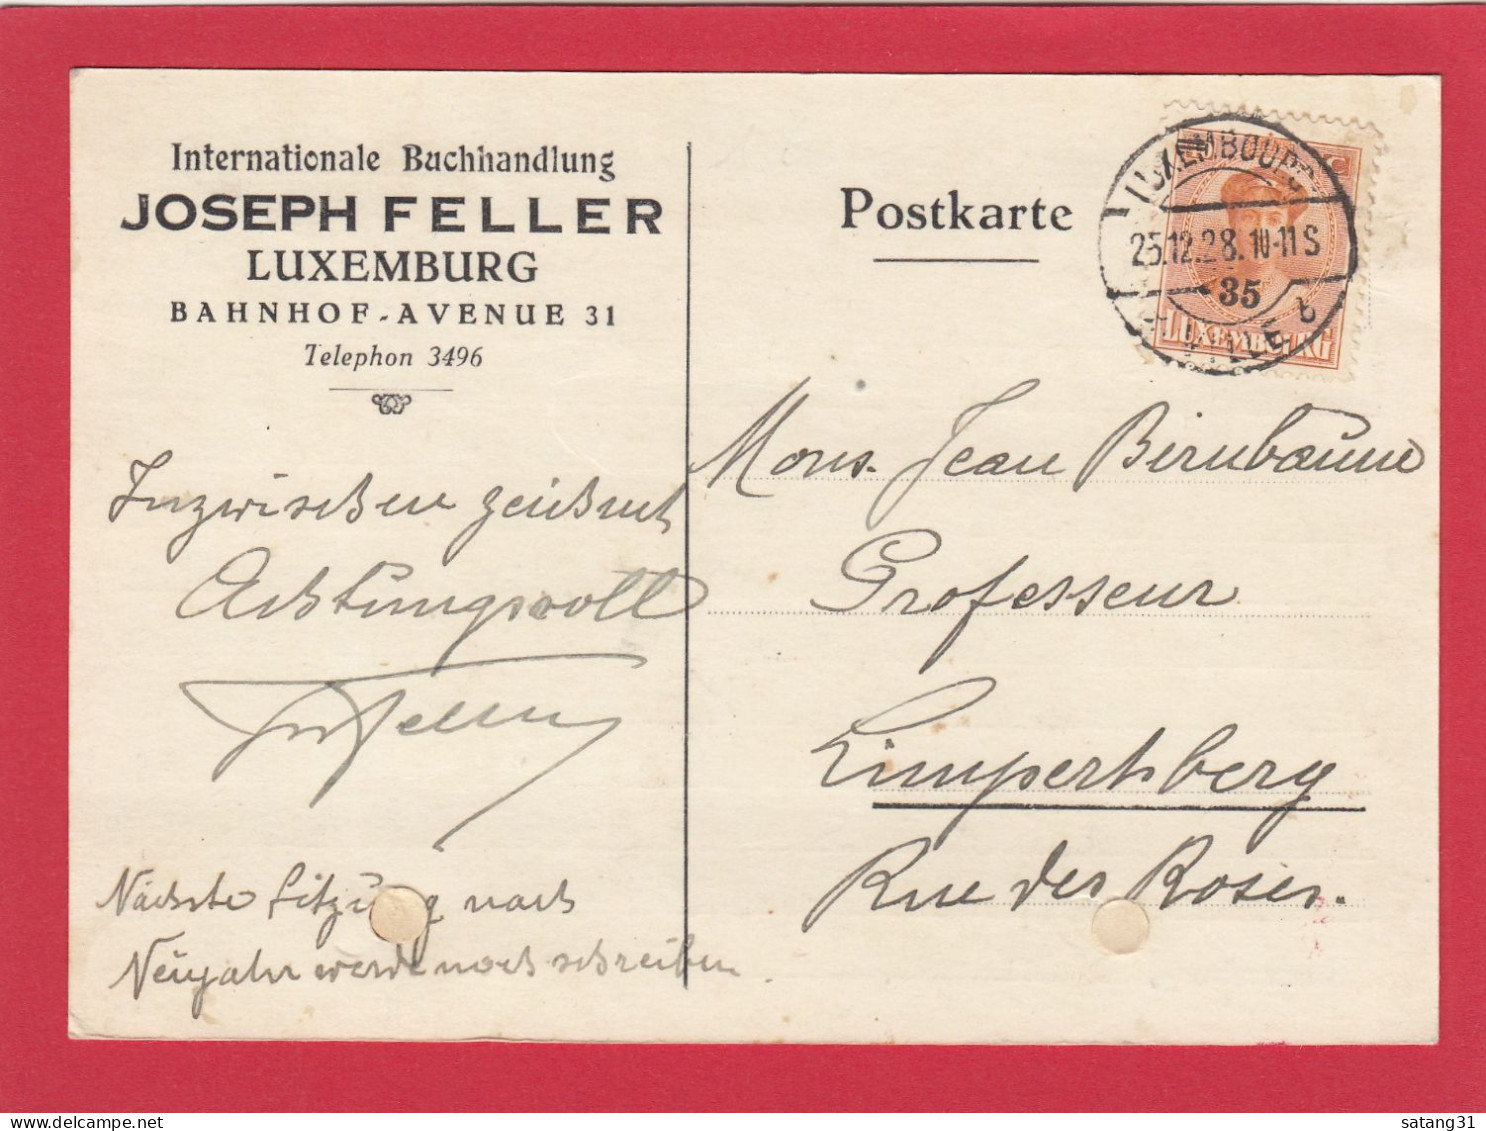 Internationale Buchhandlung
JOSEPH FELLER
LUXEMBURG
BAHNHOF-AVENUE 31
Telephon 3496
Inzwischen zeichnet
Achtungsvoll
Jos Feller
Nächste Sitzung nach
Neujahr werde noch schreiben.
Postkarte
LUXEMBOURG
25.12.28.10-11S
35
VILLE b
LUXEMBOURG
Mons. Jean Birnbaum
Professeur
Limpertsberg
Rue des Roses.
satang31